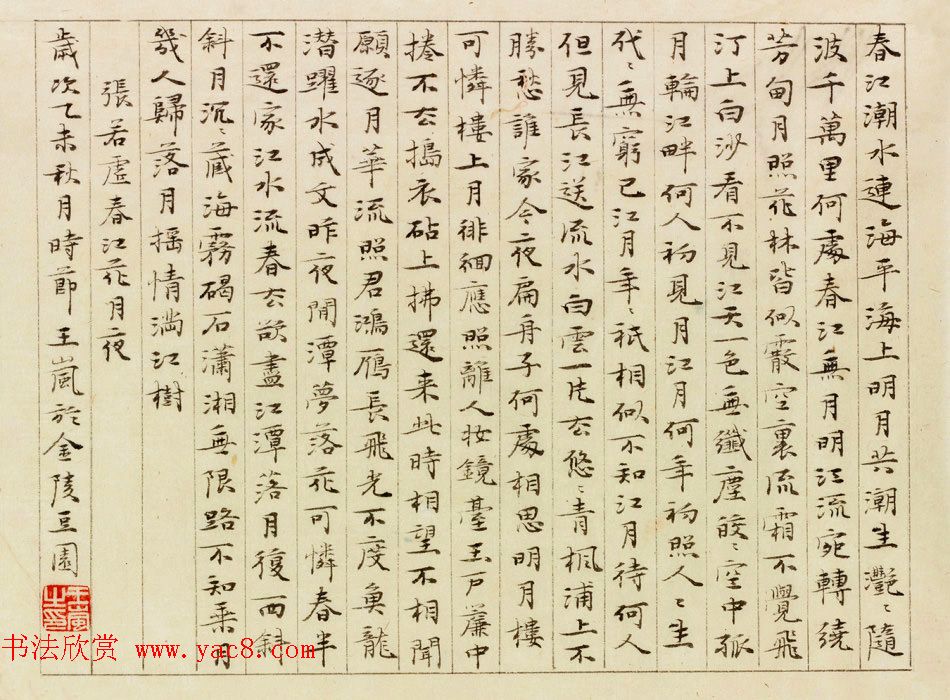 春江潮水連海平海上明月共潮生灩〻隨
波千萬里何處春江無月明江流宛轉繞
芳甸月照花林皆似霰空裏流霜不覺飛
汀上白沙看不見江天一色無纖塵皎〻空中孤
月輪江畔何人初見月江月何年初照人〻生
代〻無窮已江月年〻秖相似不知江月待何人
但見長江送流水白雲一片去悠〻青楓浦上不
勝愁誰家今夜扁舟子何處相思明月樓
可憐樓上月徘徊應照離人妝鏡臺玉戶簾中
捲不去搗衣砧上拂還来此時相望不相聞
願逐月華流照君鴻鴈長飛光不度魚龍
潛躍水成文昨夜閒潭夢落花可憐春半
不還家江水流春去欲盡江潭落月復西斜
斜月沉〻藏海霧碣石瀟湘無限路不知乘月
幾人歸落月搖情滿江樹
張若虛春江花月夜
歲次乙未秋月時節王嵐於金陵豆園
王嵐之印
书法欣赏 www.yac8.com